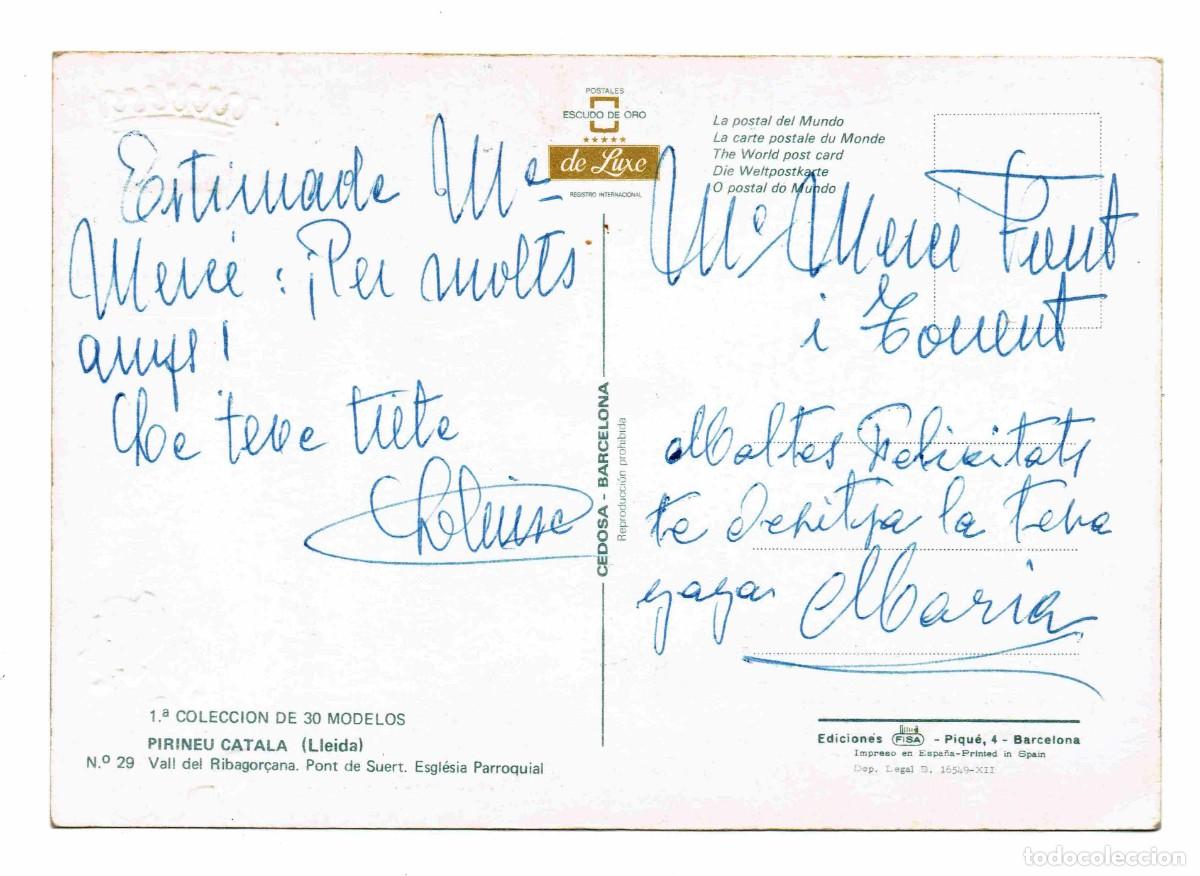 Estimada Mª
Mercé : ¡Per molts
anys!
La teva tieta
POSTALES
ESCUDO DE ORO
de Luxe
REGISTRO INTERNACIONAL
La postal del Mundo
La carte postale du Monde
The World post card
Die Weltpostkarte
O postal do Mundo
CEDOSA - BARCELONA
Reproducción prohibida
Mª Mercè Font
i Torrent
Moltes Felicitats
te desitja la teva
yaya Maria
1.ª COLECCION DE 30 MODELOS
PIRINEU CATALA (Lleida)
N.º 29 Vall del Ribagorçana. Pont de Suert. Església Parroquial
Ediciones FISA - Piqué, 4 - Barcelona
Impreso en España-Printed in Spain
Dep. Legal B. 16549-XII
todocoleccion